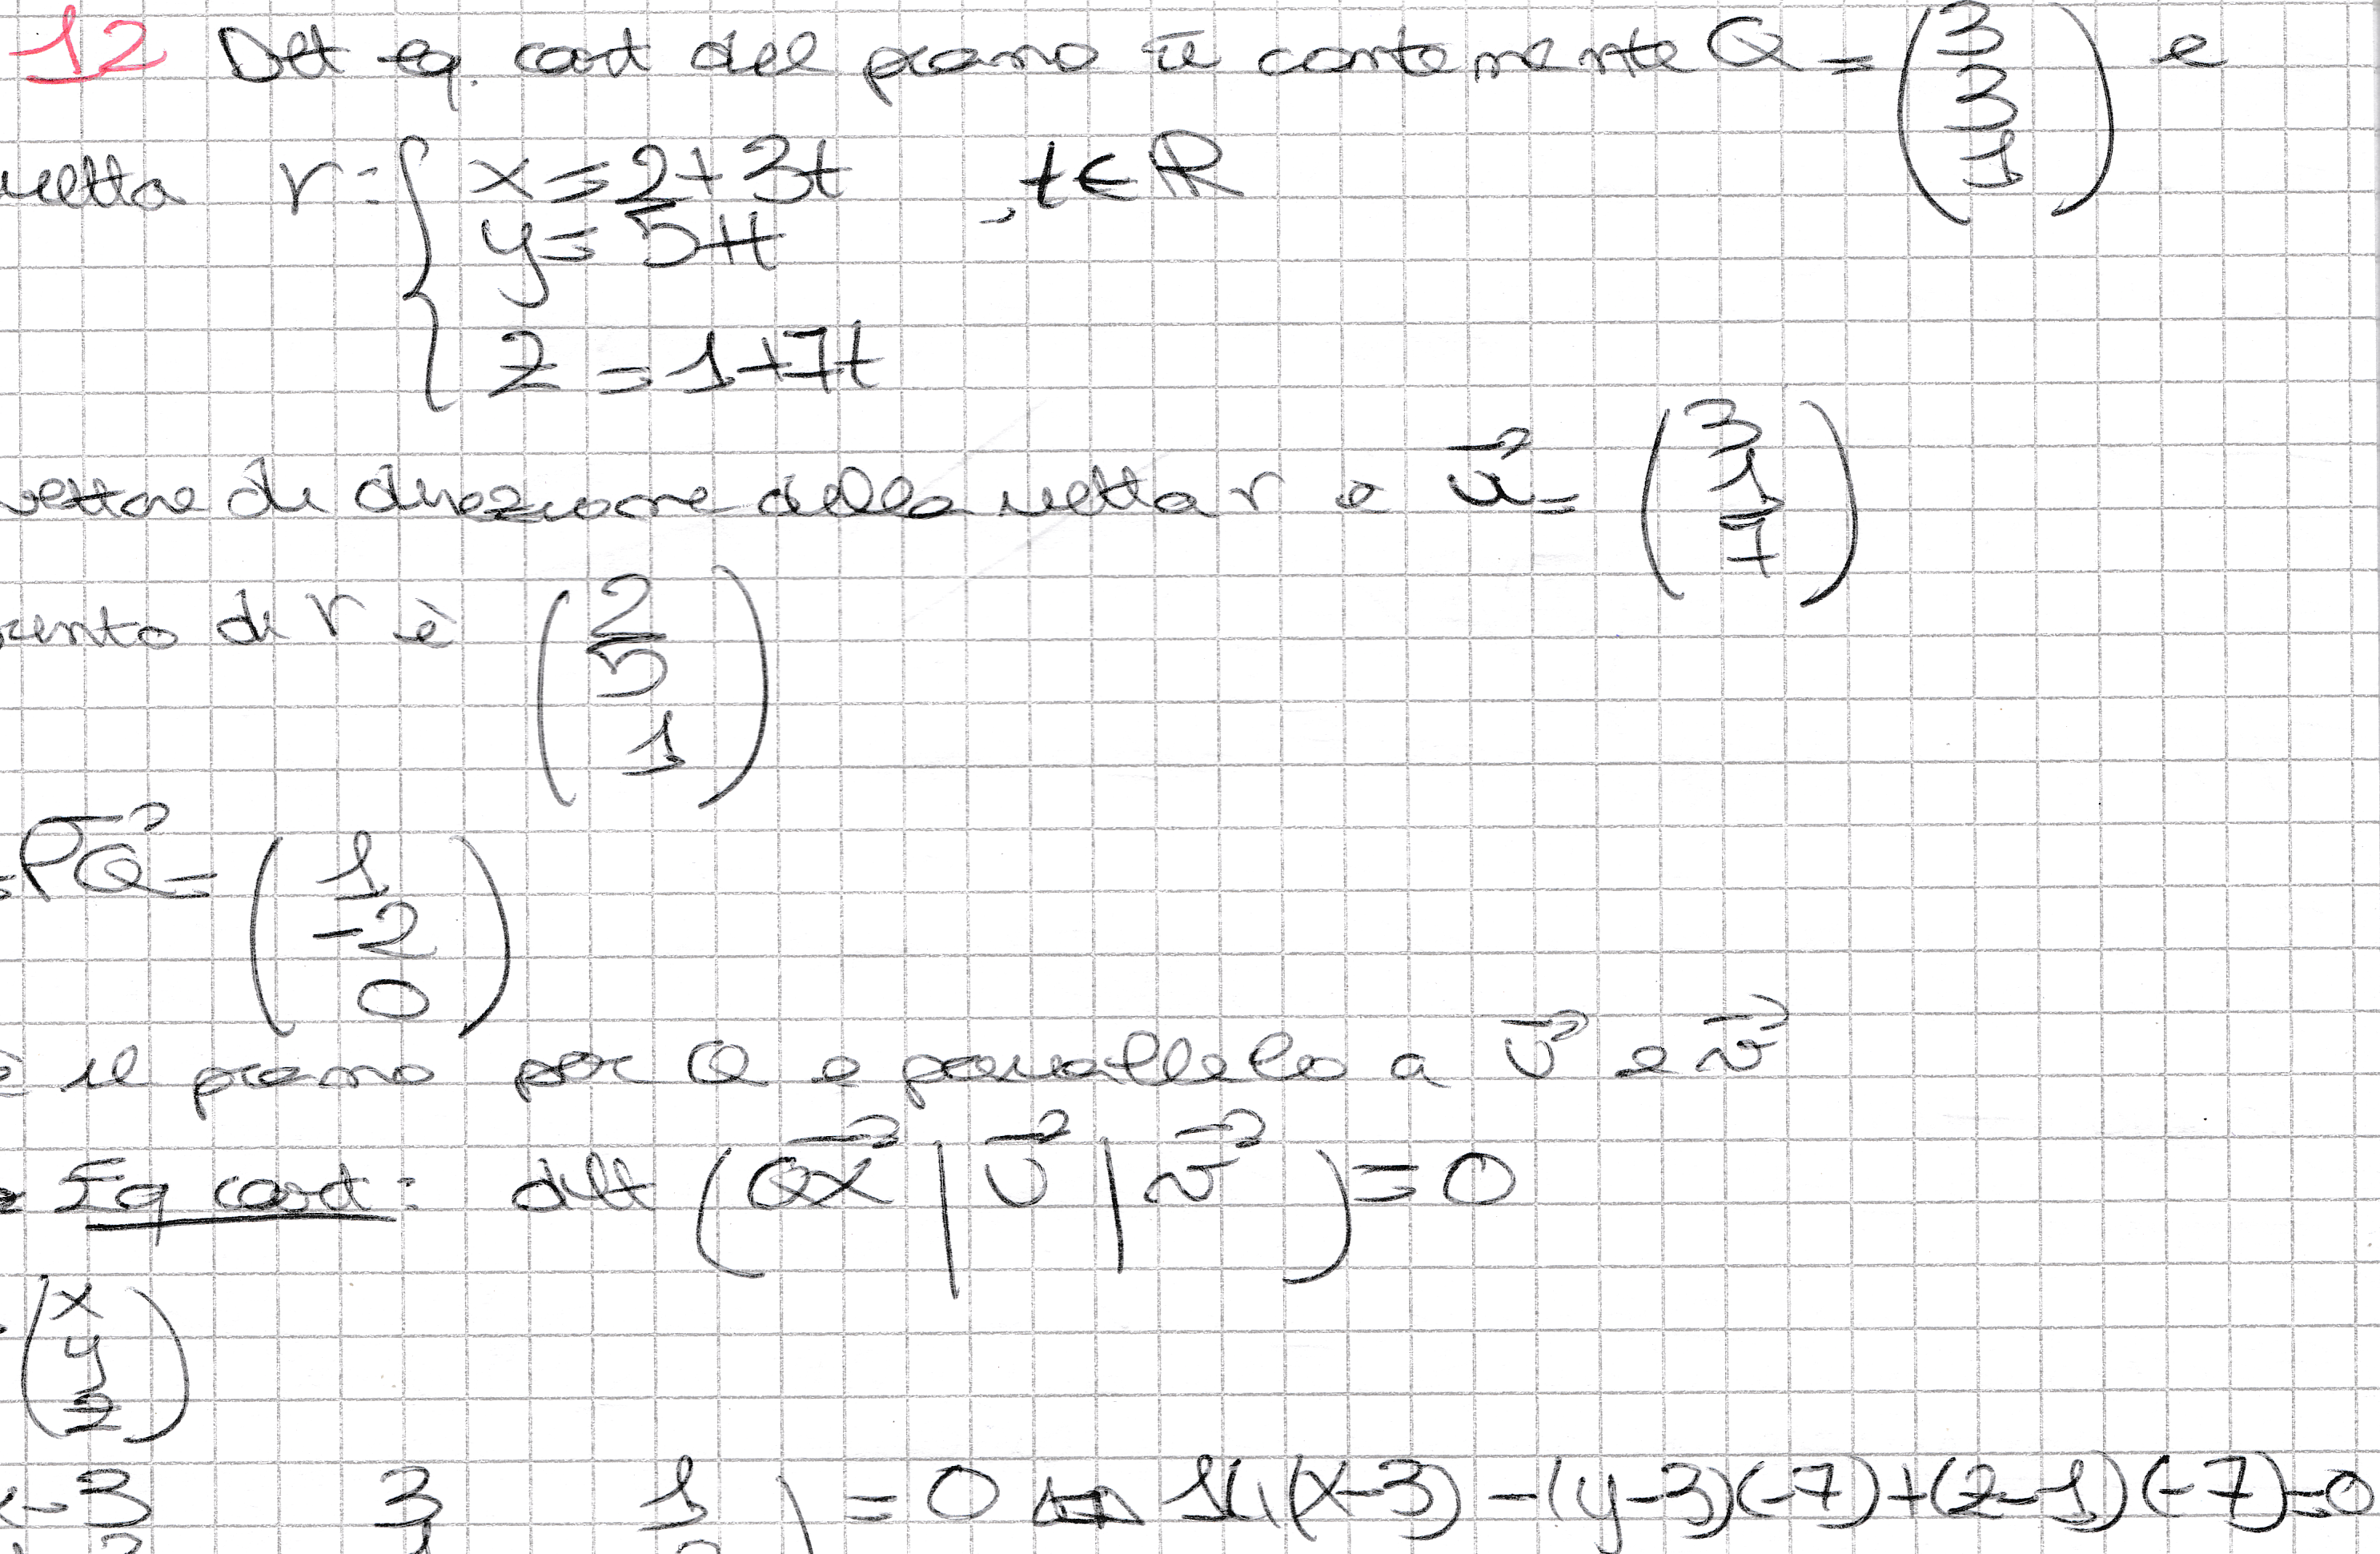 12 Det eq. cart del piano π contenente Q = (3 3 1) e
retta r: { x = 2+3t , t∈ℝ
y = 5+t
z = 1+7t
vettore di direzione della retta r è u⃗ = (3 1 7)
punto di r è (2 5 1)
= PQ⃗ = (1 -2 0)
è il piano per Q e parallelo a u⃗ e v⃗
Eq cart: det (QX⃗ | u⃗ | v⃗) = 0
(x y z)
x-3 3 1 ) = 0 ⇔ 14(x-3) -(y-3)(-7)+(z-1)(-7)=0